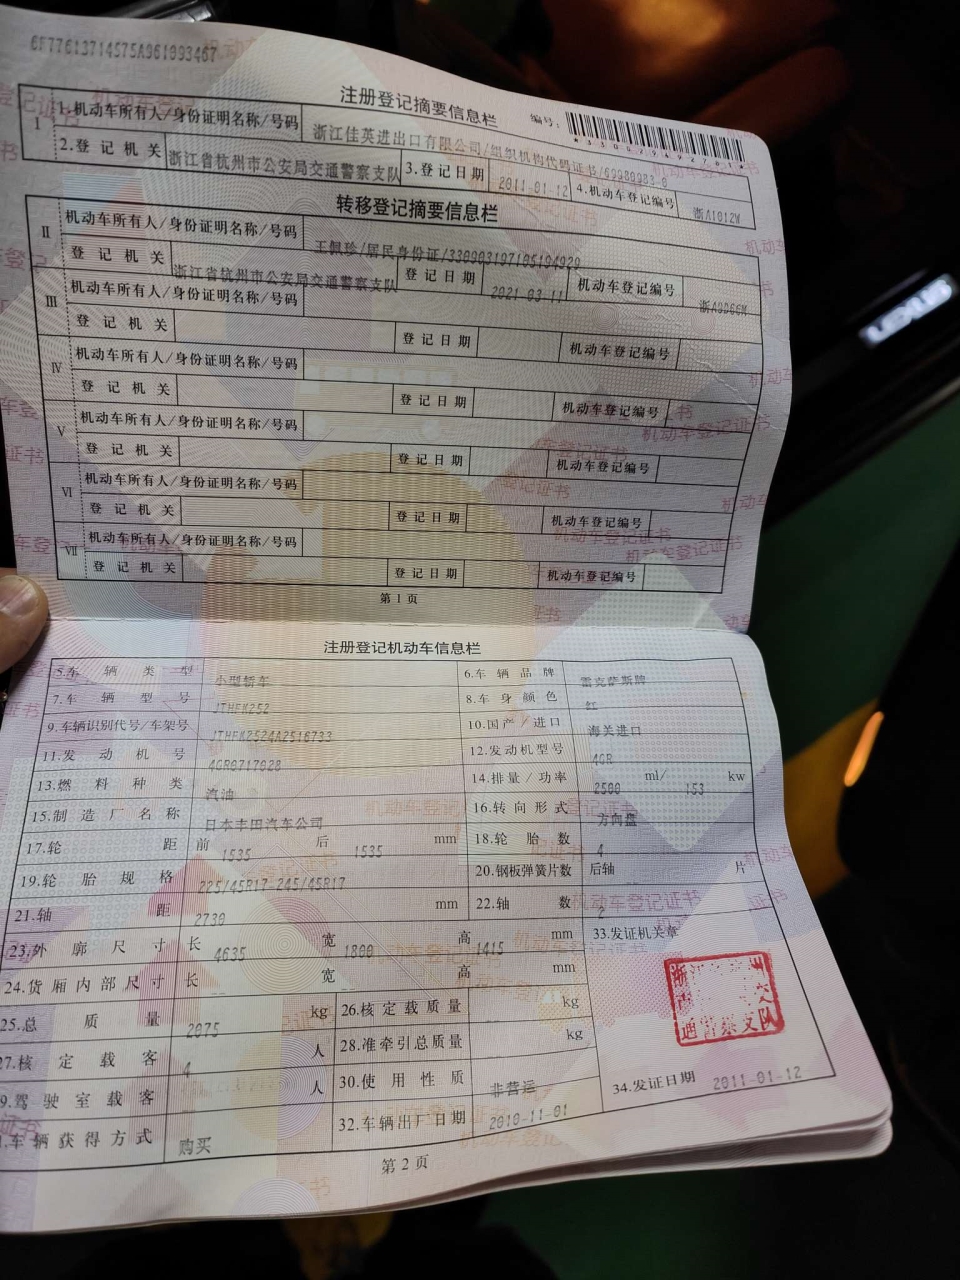 6F77613714575A961093467
注册登记摘要信息栏
编号:
1 1.机动车所有人/身份证明名称/号码 浙江佳英进出口有限公司/组织机构代码证书/
2.登记机关 浙江省杭州市公安局交通警察支队 3.登记日期 2011-01-12 4.机动车登记编号 浙A1012W
转移登记摘要信息栏
Ⅱ 机动车所有人/身份证明名称/号码 王佩珍/居民身份证/330903197105194929
登记机关 浙江省杭州市公安局交通警察支队 登记日期 2021-03-11 机动车登记编号
Ⅲ 机动车所有人/身份证明名称/号码
登记机关 登记日期 机动车登记编号
Ⅳ 机动车所有人/身份证明名称/号码
登记机关 登记日期 机动车登记编号
Ⅴ 机动车所有人/身份证明名称/号码
登记机关 登记日期 机动车登记编号
Ⅵ 机动车所有人/身份证明名称/号码
登记机关 登记日期 机动车登记编号
Ⅶ 机动车所有人/身份证明名称/号码
登记机关 登记日期 机动车登记编号
第1页
注册登记机动车信息栏
5.车辆类型 小型轿车 6.车辆品牌 雷克萨斯牌
7.车辆型号 JTHFK252 8.车身颜色 红
9.车辆识别代号/车架号 JTHFK2524A2516733 10.国产/进口 海关进口
11.发动机号 4GR0717028 12.发动机型号 4GR
13.燃料种类 汽油 14.排量/功率 2500 ml/ 153 kw
15.制造厂名称 日本丰田汽车公司 16.转向形式 方向盘
17.轮距 前 1535 后 1535 mm 18.轮胎数 4
19.轮胎规格 225/45R17-245/45R17 20.钢板弹簧片数 后轴 -- 片
21.轴距 2730 mm 22.轴数 2
23.外廓尺寸 长 4635 宽 1800 高 1415 mm 33.发证机关章
24.货厢内部尺寸 长 -- 宽 -- 高 -- mm
25.总质量 2075 kg 26.核定载质量 -- kg
27.核定载客 4 人 28.准牵引总质量 -- kg
9.驾驶室载客 -- 人 30.使用性质 非营运
.车辆获得方式 购买 32.车辆出厂日期 2010-11-01 34.发证日期 2011-01-12
第2页
LEXUS